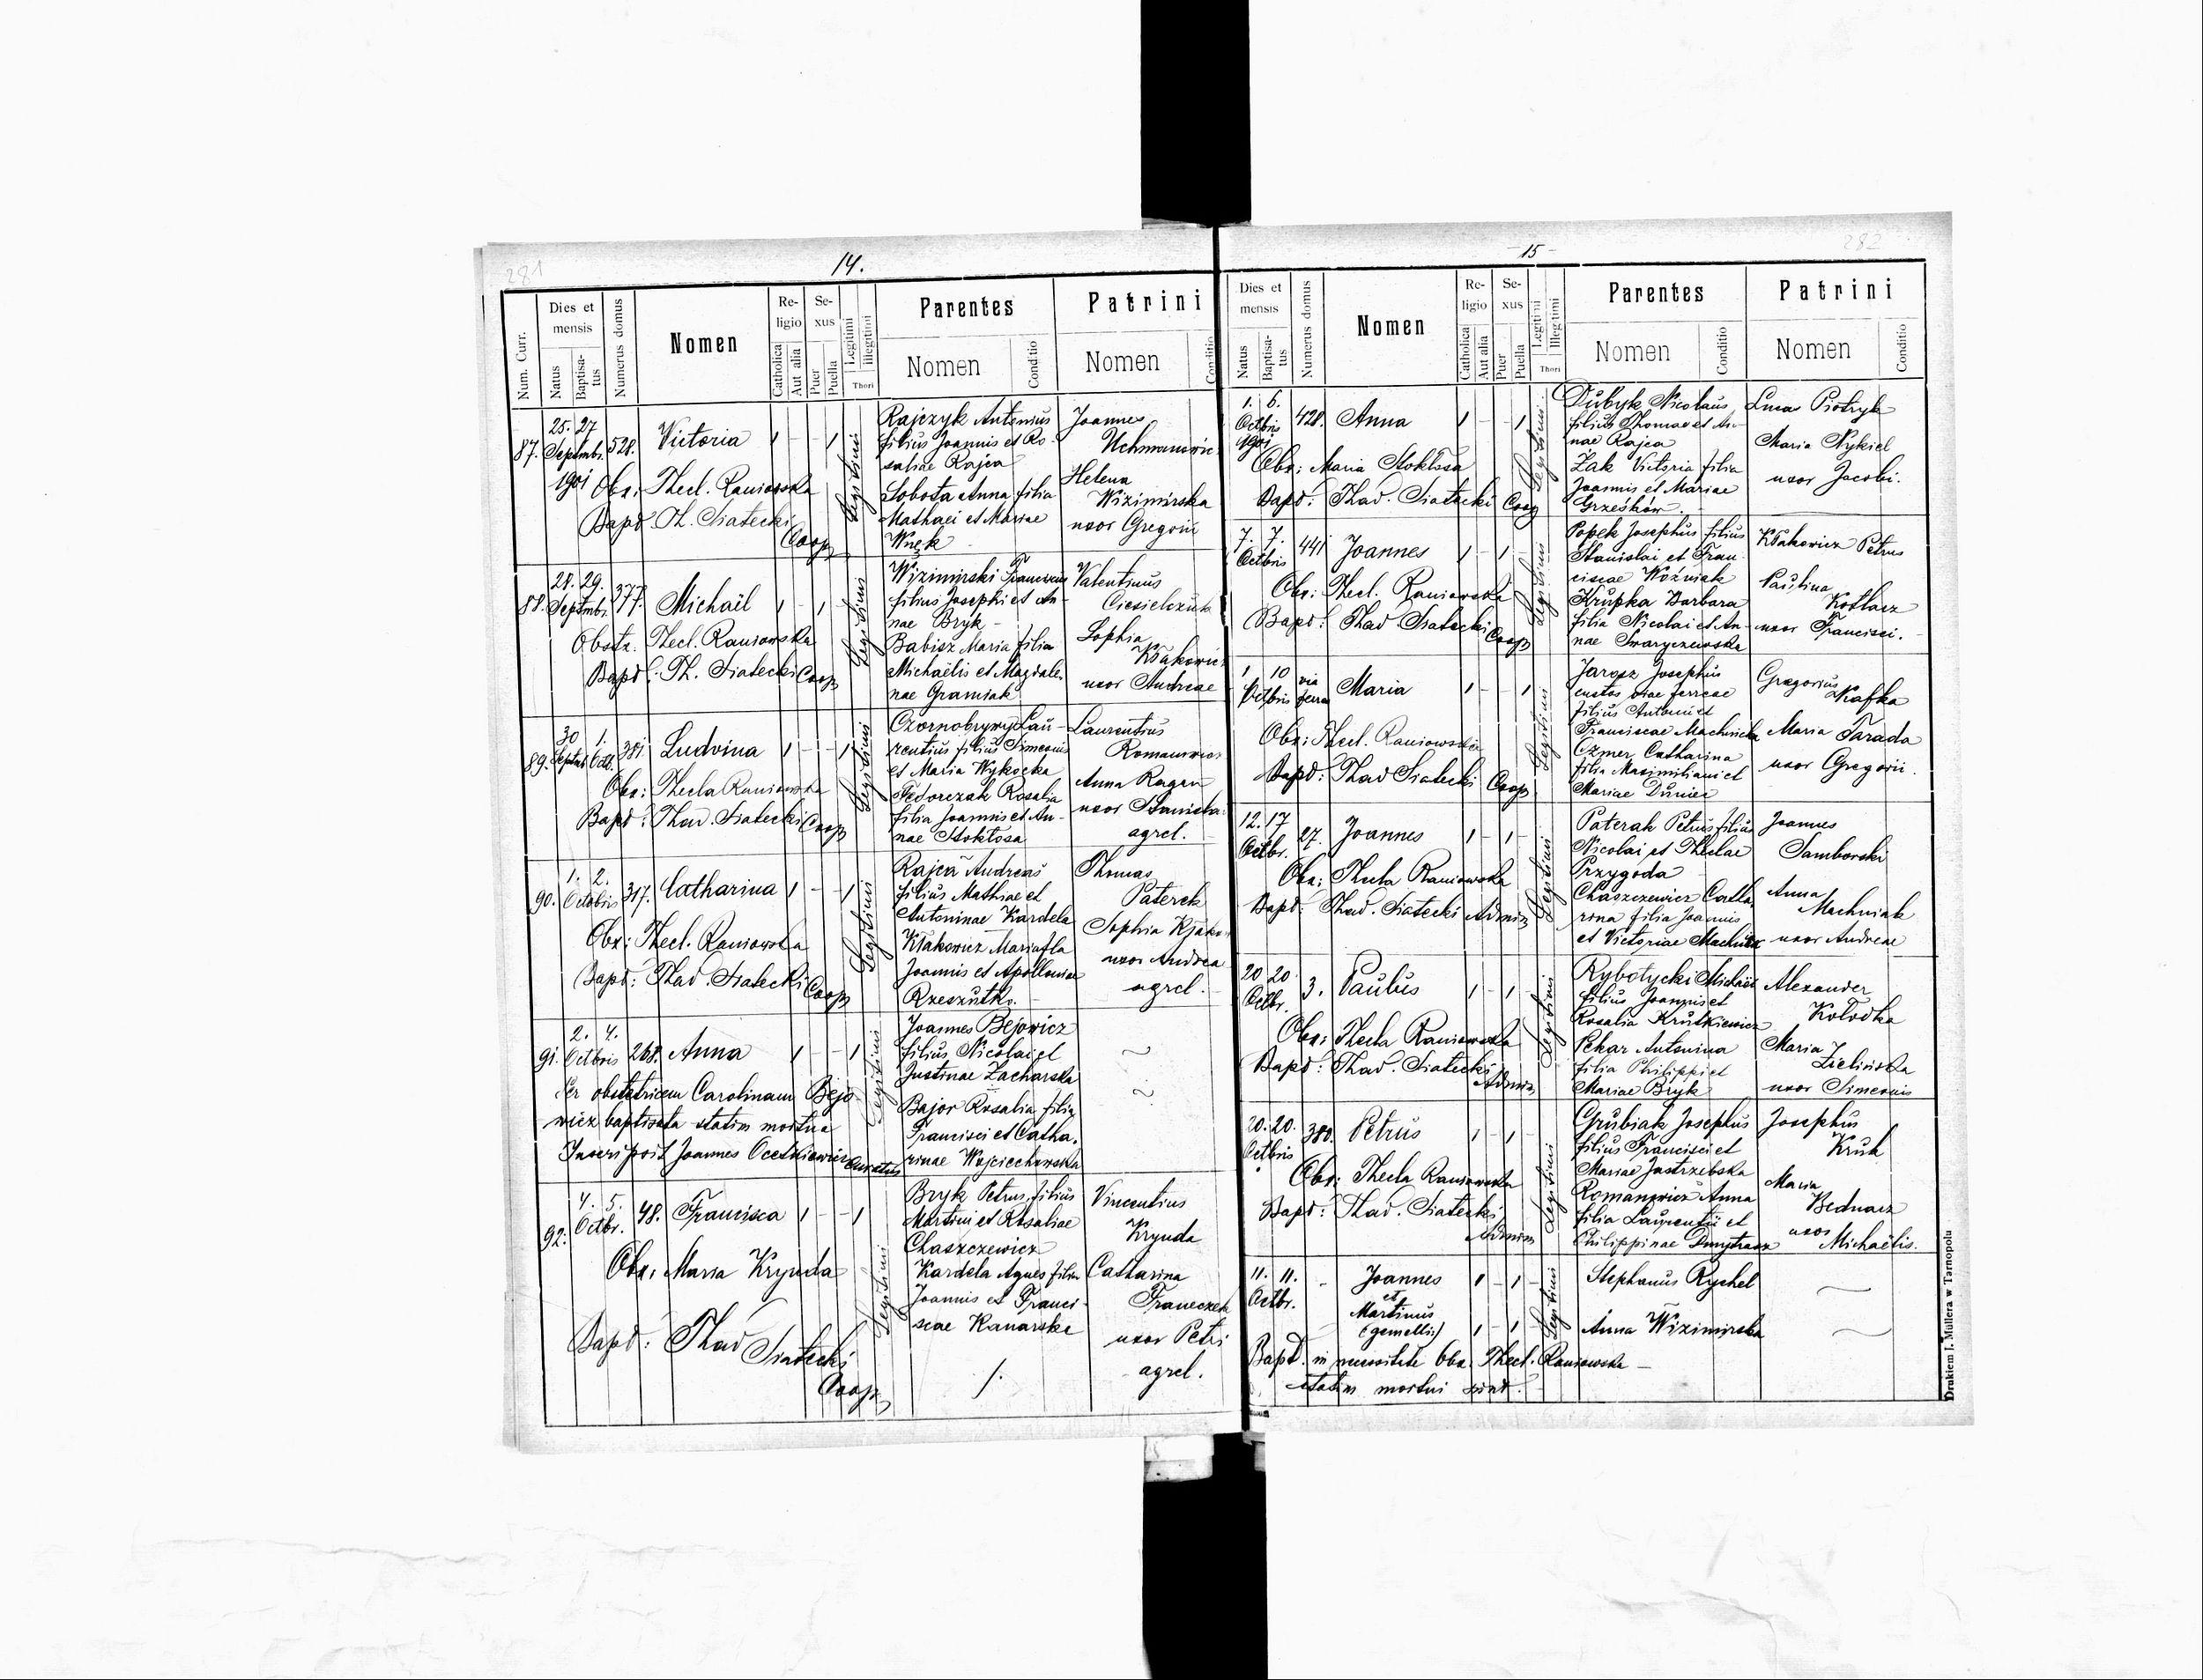 281
14.
Num. Curr.
Dies et mensis
Natus
Baptisatus
Numerus domus
Nomen
Religio
Catholica
Aut alia
Sexus
Puer
Puella
Legitimi
Illegitimi
Thori
Parentes
Nomen
Conditio
Patrini
Nomen
Conditio
87.
25. 27
Septmbr.
1901
528.
Victoria
1 - - 1
Legitimi
Obx: Thecl. Raniowska
Bapd Th. Siatecki
Coop
Rajczyk Antonius
filius Joannis et Ro-
saliae Rajca
Sobota Anna filia
Mathaei et Mariae
Wnęk
Joannes
Helena
Wizimirska
uxor Gregorii
88.
28. 29.
Septmbr.
377.
Michaël
1 - 1 -
Legitimi
Obstx. Thecl. Raniowska
Bapd: Th. Siatecki Coop
Wizimirski Franciscus
filius Josephi et An-
nae Bryk -
Babisz Maria filia
Michaëlis et Magdale-
nae Gramiak
Valentinus
Ciesielczuk
Sophia
Kłakowicz
uxor Andreae
89.
30 1.
Septmb. Octb.
381
Ludvina
1 - - 1
Legitimi
Obx: Thecla Raniowska
Bapd: Thad. Siatecki Coop
Czornobrywy Lau-
rentius filius Simeonis
et Maria Wykocka
Fedorczak Rosalia
filia Joannis et An-
nae Stokłosa
Laurentius
Romanowicz
Anna Ragan
uxor Stanisla.
agrel.
90.
1. 2.
Octobris
317.
Catharina
1 - - 1
Legitimi
Obx: Thecl. Raniowska
Bapd: Thad. Siatecki Coop
Rajca Andreas
filius Mathiae et
Antoninae Kardela
Kłakowicz Maria fla
Joannis et Apolloniae
Rzeszutko.
Thomas
Paterek
Sophia
uxor Andrea
agrel.
91.
2. 4.
Octbris
268.
Anna
1 - - 1
Legitimi
Per obstetricem Carolinam Bejo
wicz baptisata statim mortua
Inscripsit Joannes Ocetkiewicz curatus
Joannes Bejowicz
filius Nicolai et
Justinae Zacharska
Bajor Rosalia filia
Francisci et Catha-
rinae Wojciechowska
92.
4. 5.
Octbr.
48.
Francisca
1 - - 1
Legitimi
Obx: Maria Krynda
Bapd: Thad Siatecki
Coop
Bryk Petrus filius
Martini et Rosaliae
Chaszczewicz
Kardela Agnes filia
Joannis et Franci-
scae Kanarska
Vincentius
Krynda
Catharina
Franeczek
uxor Petri
agrel.
282
-15-
Dies et mensis
Natus
Baptisatus
Numerus domus
Nomen
Religio
Catholica
Aut alia
Sexus
Puer
Puella
Legitimi
Illegitimi
Thori
Parentes
Nomen
Conditio
Patrini
Nomen
Conditio
1. 6.
Octbris
1901
428.
Anna
1 - - 1
Legitimi
Obx: Maria Stokłosa
Bapd: Thad. Siatecki Coop
Dubyk Nicolaus
filius Thomae et An-
nae Rajca
Żak Victoria filia
Joannis et Mariae
Grześków.
Luca Piotryk
Maria Nykiel
uxor Jacobi.
7. 7.
Octbris
441
Joannes
1 - 1 -
Legitimi
Obx: Thecl. Raniowska
Bapd: Thad Siatecki Coop
Popek Josephus filius
Stanislai et Fran-
ciscae Woźniak
Krupka Barbara
filia Nicolai et An-
nae Swaryczewska
Kłakowicz Petrus
Paulina
Kotlarz
uxor Francisci.
1 10
Octbris
via ferrea
Maria
1 - - 1
Legitimi
Obx: Thecl. Raniowska
Bapd: Thad Siatecki Coop
Jarosz Josephus
custos viae ferreae
filius Antonii et
Franciscae Machnicka
Czmer Catharina
filia Maximiliani et
Mariae Duniec
Gregorius
Kafka
Maria Tarada
uxor Gregorii.
12. 17
Octbr.
27.
Joannes
1 - 1 -
Legitimi
Obx: Thecla Raniowska
Bapd: Thad. Siatecki Admin
Paterak Petrus filius
Nicolai et Theclae
Przygoda
Chaszczewicz Catha-
rina filia Joannis
et Victoriae
Joannes
Samborski
Anna
Machniak
uxor Andreae
20 20
Octbr.
3.
Paulus
1 - 1 -
Legitimi
Obx: Thecla Raniowska
Bapd: Thad. Siatecki
Admin
Rybotycki Michaël
filius Joannis et
Rosalia Krutkiewicz
Pekar Antonina
filia Philippi et
Mariae Bryk
Alexander
Kołodka
Maria
Zielińska
uxor Simeonis
20. 20.
Octbris
380.
Petrus
1 - 1 -
Legitimi
Obx: Thecla Raniowska
Bapd: Thad. Siatecki
Admin
Grubiak Josephus
filius Francisci et
Mariae Jastrzebska
Romanowicz Anna
filia Laurentii et
Philippinae Dmytrasz
Josephus
Kruk
Maria
Bednarz
uxor
Michaëlis.
11. 11.
Octbr.
-
Joannes
et
Martinus
(gemelli)
1 - 1 -
1 - 1
Legitimi
Stephanus Rychel
Anna Wizimirska
Bapt. in necessitate Obx. Thecl. Raniowska -
statim mortui sunt.
Drukiem J. Müllera w Tarnopolu